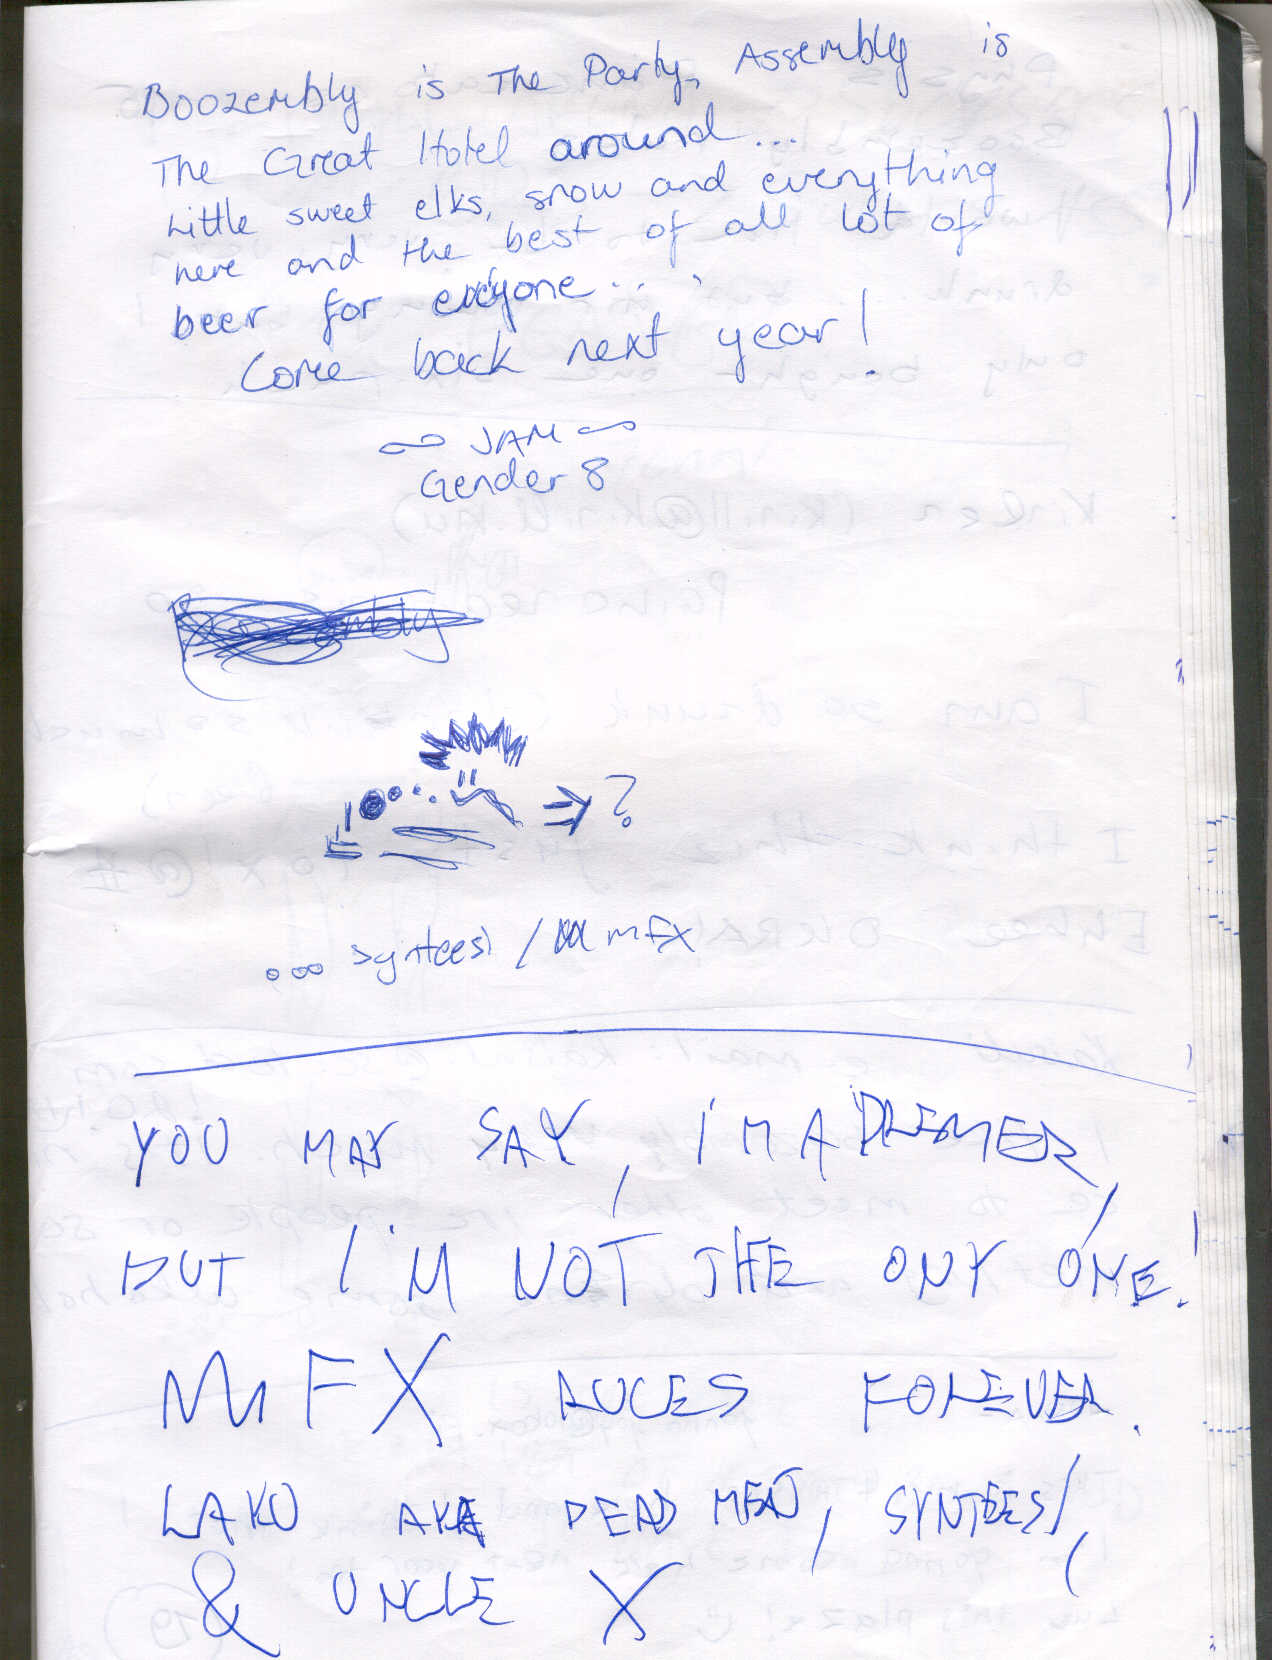 Boozembly is The Party, Assembly is
The Great Hotel around...
Little sweet elks, snow and everything
here and the best of all lot of
beer for everyone...
Come back next year!
JAM
Gender 8
?
... synteesi / mFX
YOU MAY SAY, I'M A DREMER,
BUT I'M NOT THE ONY ONE.
MFX FOREVER.
LAKU AKA DEAD MEN, SYNTEESI,
& UNCLE X